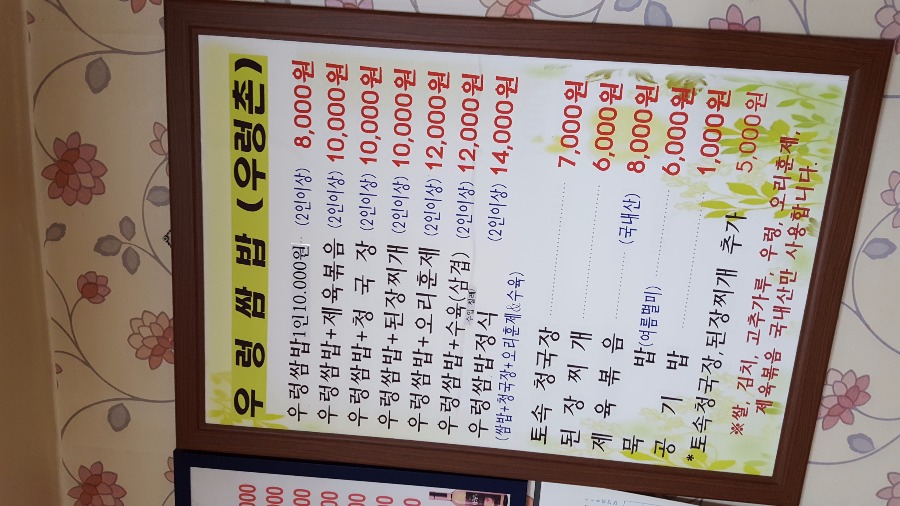 우 렁 쌈 밥 (우렁촌)
우렁쌈밥1인10.000원 (2인이상) 8,000원
우렁쌈밥+제육볶음 (2인이상) 10,000원
우렁쌈밥+청 국 장 (2인이상) 10,000원
우렁쌈밥+된장찌개 (2인이상) 10,000원
우렁쌈밥+오리훈제 (2인이상) 12,000원
우렁쌈밥+수육(삼겹) (2인이상) 12,000원
우렁쌈밥정식 (2인이상) 14,000원
(쌈밥+청국장+오리훈제&수육)
토속 청국장 7,000원
된 장 찌 개 6,000원
제 육 볶 음 (국내산) 8,000원
묵 밥(여름별미) 6,000원
공 기 밥 1,000원
*토속청국장,된장찌개 추가 5,000원
※쌀, 김치, 고추가루, 우렁, 오리훈제,
제육볶음 국내산만 사용합니다.